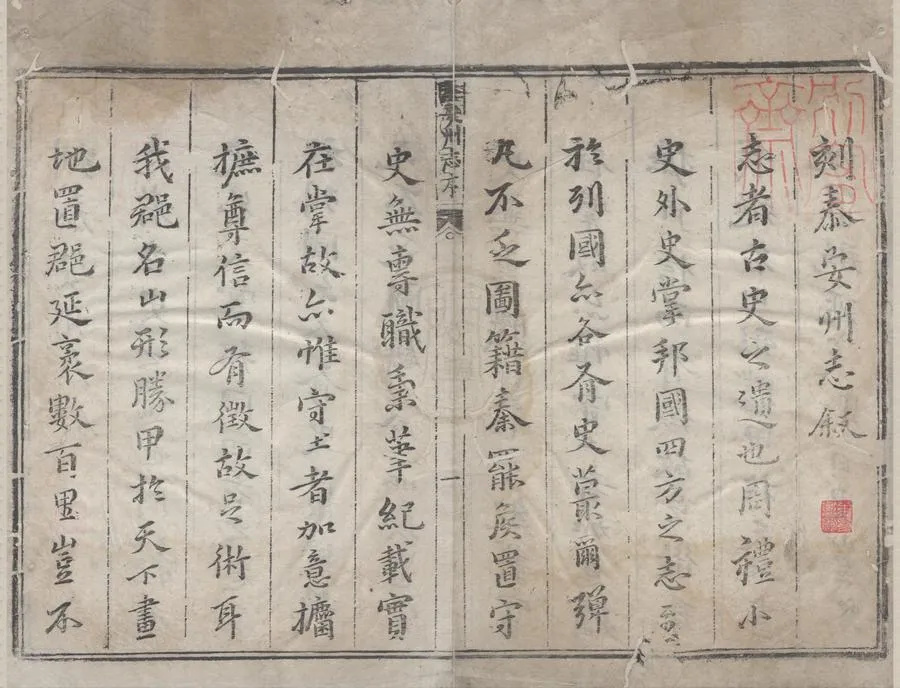 刻泰安州志叙
志者古史之遺也周禮小
史外史掌邦國四方之志至
於列國亦各有史蕞爾彈
丸不乏圖籍秦罷矦置守
泰州志序
一
史無專職秉筆紀載實
在掌故亦惟守土者加意擴
摭尊信而有徵故足術耳
我郡名山形勝甲於天下畫
地置郡延袤數百里豈不